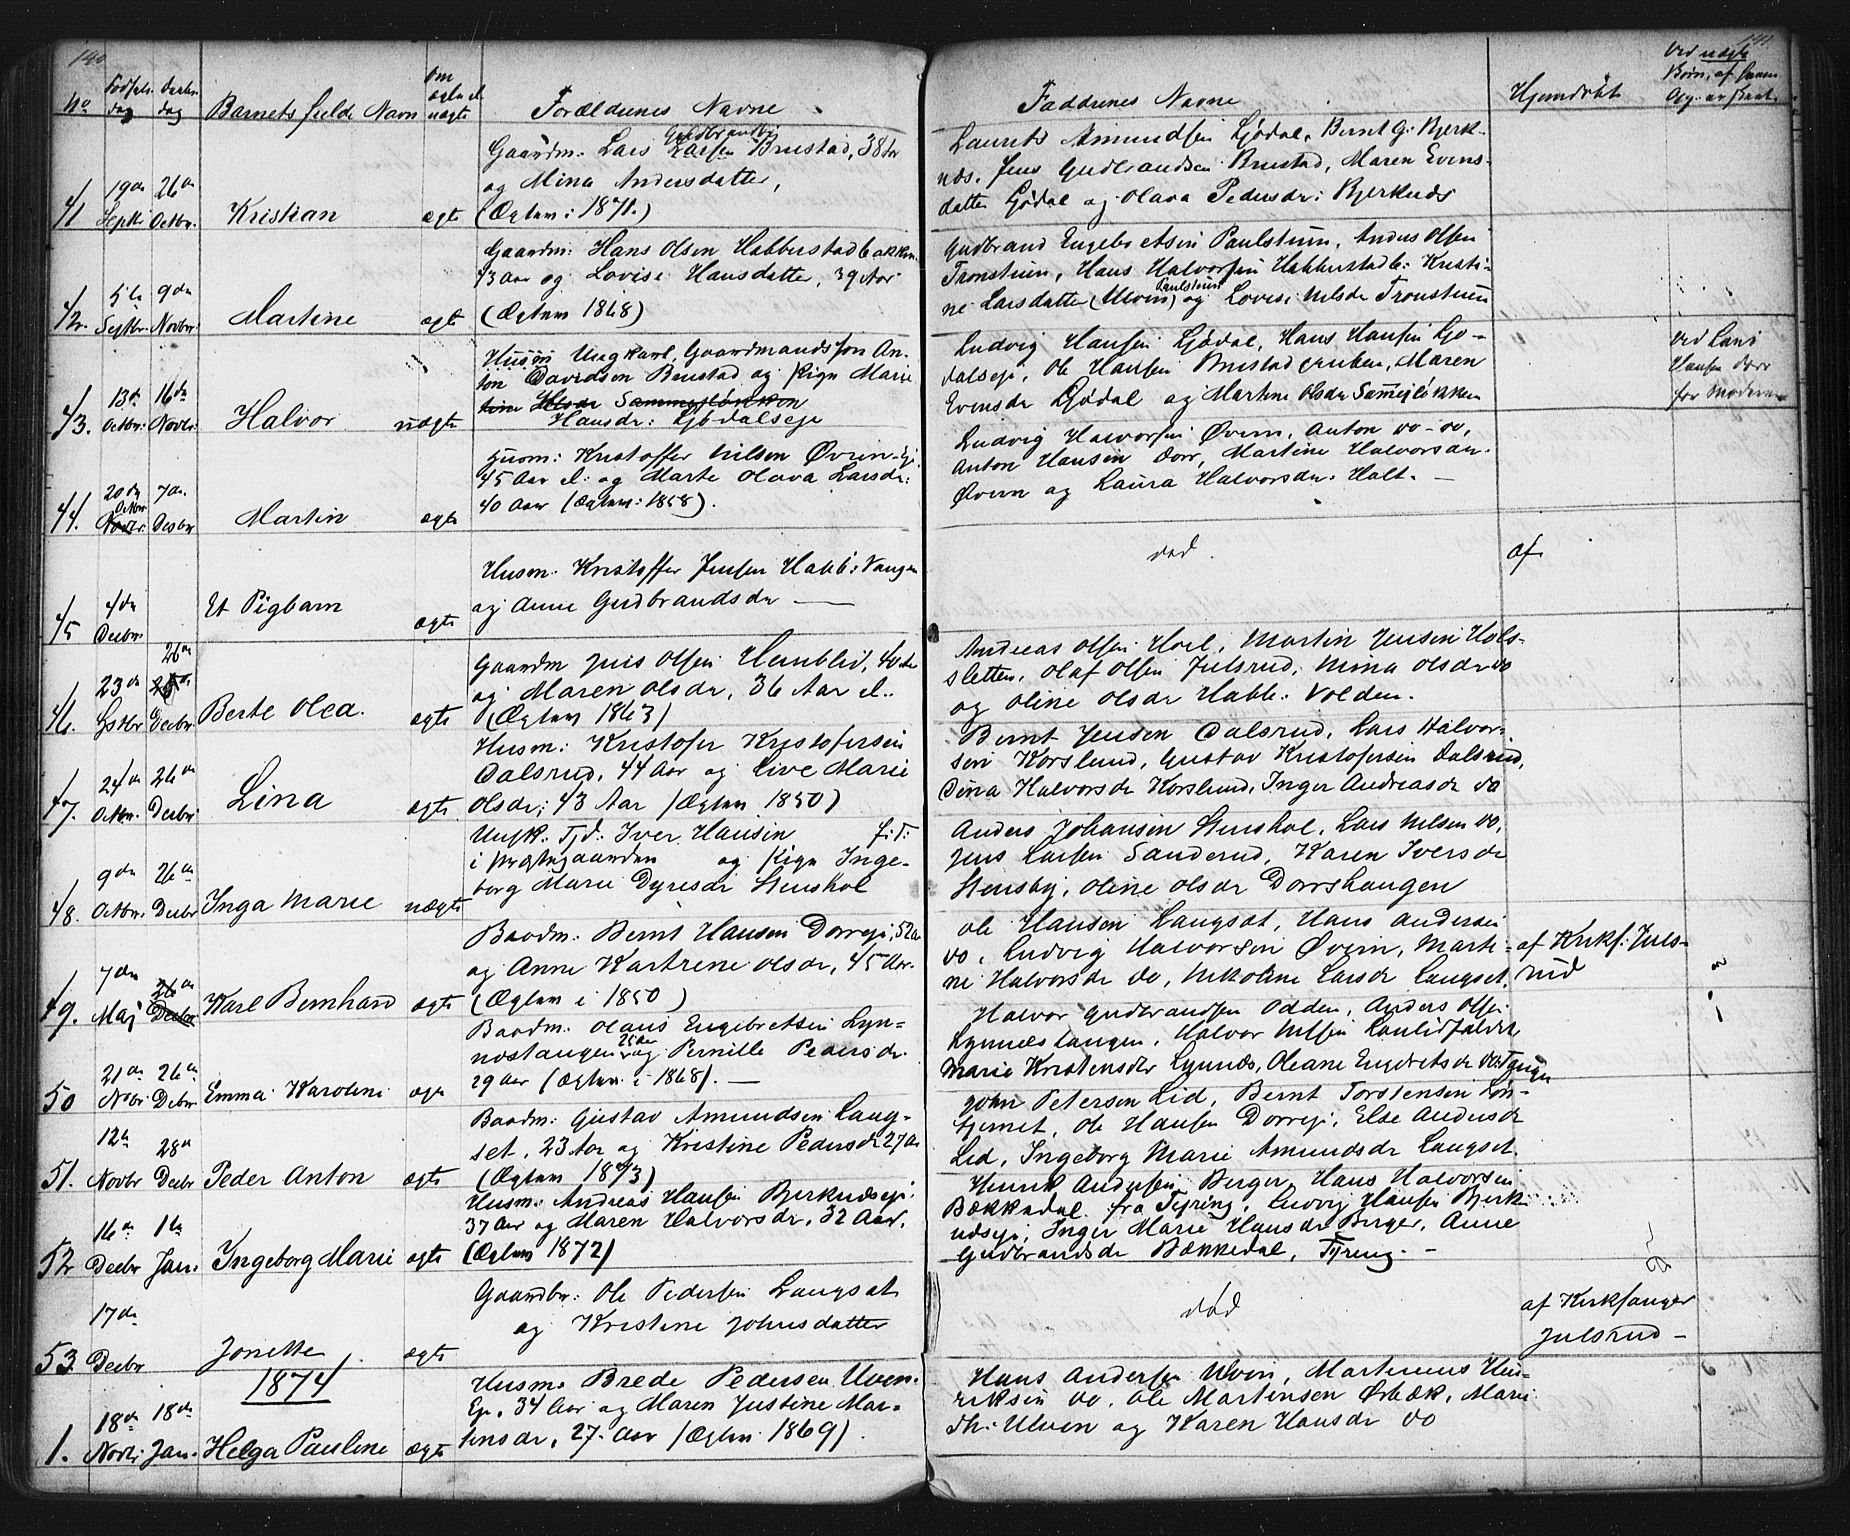 140
141
No
Fødsels
dag
Daabs
dag
Barnets fulde Navn
om
ægte el
uægte
Forældrenes Navne
Faddrenes Navne
Hjemdøbt
Ved uægte
Børn, af hvem
41
19de
Septbr
26de
Octbr.
Kristian
ægte
Gaardm. Lars Gudbrandsen Brustad, 38 Aar
og Mina Andersdatter,
(Ægtem: 1871.)
Laurits Amundsen Ljødal, Bernt G. Bjerk-
næs. Jens Gudbrandsen Brustad, Maren Evens-
datter Ljødal og Olava Pedersdr: Bjerknæs
42.
5te
Septbr.
9de
Novbr.
Martine
ægte
Gaardm: Hans Olsen Habberstadbakken
43 Aar og Lovise Hansdatter, 39 Aar
(Ægtem 1868)
Gudbrand Engebretsen Paulstuen, Anders Olsen
Tronstuen, Hans Halvorsen Habberstadb: Kristi-
ne Larsdatter (Ulven) Paulstuen og Lovise Nilsdr Tronstuen
43.
13de
Octbr:
16de
Novbr:
Halvor
uægte
Ungkarl, Gaardmandssøn An-
ton Davidsen Brustad og Pige Marie
tine Olsdr Sammesløkken
Hansdr: Ljødalseje
Ludvig Hansen Ljødal, Hans Hansen Ljø-
dalseje, Ole Hansen Brustadgruben, Maren
Evensdr Ljødal og Martine Olsdr Samesløkken
Ved Lars
Hansen Dorr
for Moderen
44.
20de
Octbr
Novbr.
7de
Decbr
Martin
ægte
Husm: Kristoffer Nilsen Øvern-Ej.
45 Aar el: og Marte Olava Larsdr:
40 Aar (Ægtem: 1858).
Ludvig Halvorsen Øvern, Anton do - do,
Anton Hansen Dorr, Martine Halvorsdr.
Øvern og Laura Halvorsdr: Holt. —
45
4de
Decbr
Et Pigbarn
ægte
Husm. Kristoffer Jensen Habb: Vangen
og Anne Gudbrandsdr —
død.
af
46.
23de
Octbr
26de
Decbr
Berte Olea.
ægte
Gaardm Jens Olsen Hemblid, 40 Aar
og Maren Olsdr, 36 Aar el..
(Ægtem 1863)
Andreas Olsen Hoel, Martin Jensen Hols-
sletten, Olaf Olsen Julsrud, Mina Olsdr do
og Oline Olsdr Habb: Volden.
47.
24de
Octbr.
26de
Decbr
Lina
ægte
Husm: Kristofer Kristofersen
Dalsrud, 44 Aar og Live Marie
Olsdr; 43 Aar (Ægtem 1850)
Bernt Jensen Dalsrud, Lars Halvor-
sen Korslund, Gustav Kristofersen Dalsrud,
Dina Halvorsdr Korslund, Inger Andreasdr do
48.
9de
Octbr.
26de
Decbr
Inga Marie
uægte
Ungk. Tjd: Iver Hansen f: T:
i Prestegaarden og Pige Inge-
borg Marie Dyresdr Stenshol
Anders Johansen Stenshol, Lars Nilsen do,
Jens Larsen Sanderud, Karen Iversdr
Stensby, Oline Olsdr Dorrshaugen
49.
7de
Maj
26de
Decbr
Karl Bernhard
ægte
Baadm: Bernt Hansen Dorreje, 52 Aar
og Anne Kartrene Olsdr, 45 Aar.
(Ægtem i 1850)
Ole Hansen Langset, Hans Andersen
do, Ludvig Halvorsen Øvern, Marti-
ne Halvorsdr do, Nikoline Larsdr Langset.
af Kirkes: Juls-
rud
50
21de
Novbr
26de
Decbr
Emma Karoline
ægte
Baadm: Olaus Engebretsen Lyn-
næstangen 25 Aar og Pernille Pedersdr.
29 Aar (Ægtem. i 1868). —
Halvor Gudbrandsen Odden, Anders Olsen
Lynnæstangen, Halvor Nilsen
Marie Kristensdr Lynnæs, Oleane Engebretsdr do Tangen
51.
12te
Novbr
28de
Decbr
Peder Anton
ægte
Baadm: Gustav Amundsen Lang-
set, 23 Aar og Kristine Pedersdr 27 Aar
(Ægtem 1873)
John Petersen Lid, Bernt Torstensen Løn-
tjernet, Ole Hansen Dorreje, Else Andersdr
Lid, Ingeborg Marie Amundsdr Langset.
52
16de
Decbr
1te
Jan.
Ingeborg Marie
ægte
Husm: Andreas Hansen Bjerknæseje.
37 Aar og Maren Halvorsdr, 32 Aar.
(Ægtem 1872)
Henrik Andersen Berger, Hans Halvorsen
Bækkedal fra Fjering, Ludvig Hansen Bjerk
næseje, Inger Marie Hansdr Berger, Anne
Gudbrandsdr Bækkedal, Fjering. —
53.
17de
Decbr
Jonette
ægte
Gaardbr: Ole Pedersen Langset
og Kristine Johnsdatter
død
af Kirksanger
Julsrud —
1874
1.
18de
Novbr.
18de
Jan.
Helga Pauline
ægte
Husm. Brede Pedersen Ulven-
Ej, 34 Aar og Maren Justine Mar-
tensdr, 27. Aar (Ægtem. 1869).
Hans Andersen Ulven, Martinius Hen-
riksen do, Ole Martensen Ørbæk, Marie
Th: Ulven og Karen Hansdr do